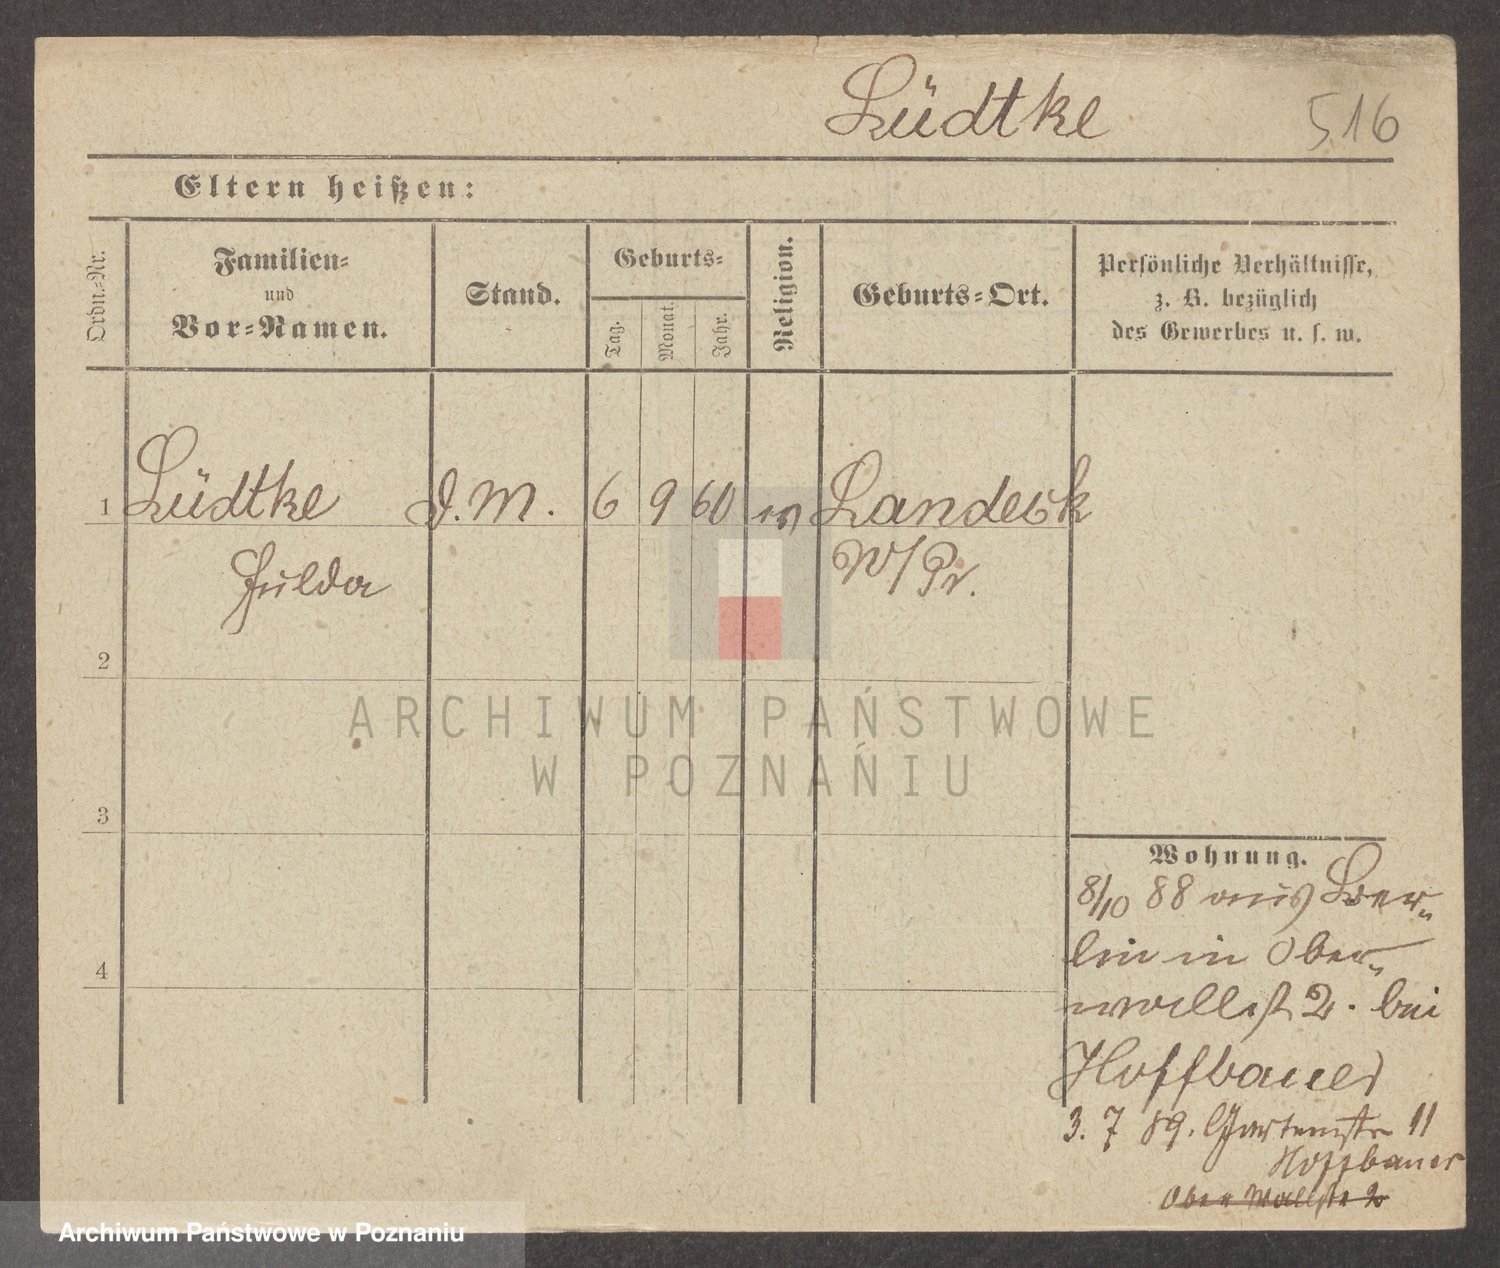 Lüdtke 516
Eltern heißen:
Ordn.=Nr.
Familien=
und
Vor=Namen.
Stand.
Geburts=
Tag.
Monat.
Jahr.
Religion.
Geburts=Ort.
Persönliche Verhältnisse,
z. B. bezüglich
des Gewerbes u. s. w.
1 Lüdtke D.M. 6 9 60 ev Landeck
Hulda W/Pr.
2
3
4
Wohnung.
8/10 88 aus Ber=
lin in Ober=
wallst 2. bei
Hoffbauer
3. 7 89. Gartenstr 11
Hoffbauer
Ober Wallstr 2
ARCHIWUM PAŃSTWOWE
W POZNANIU
Archiwum Państwowe w Poznaniu